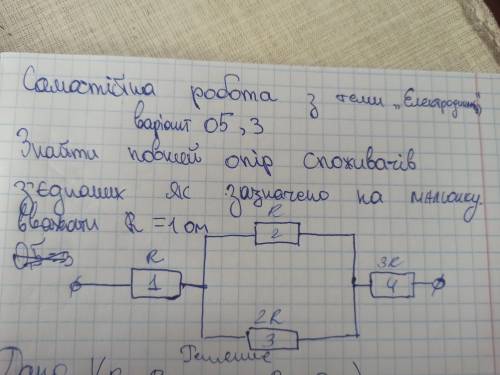 Самостійна робота з теми "Електродин
варіант 05,3
Знайти повней опір споживачів
з'єднаних як зазначено на малюнку.
Вважати R = 1 ом
05
R
2
R
1
3R
4
2R
3
Решение
Дано